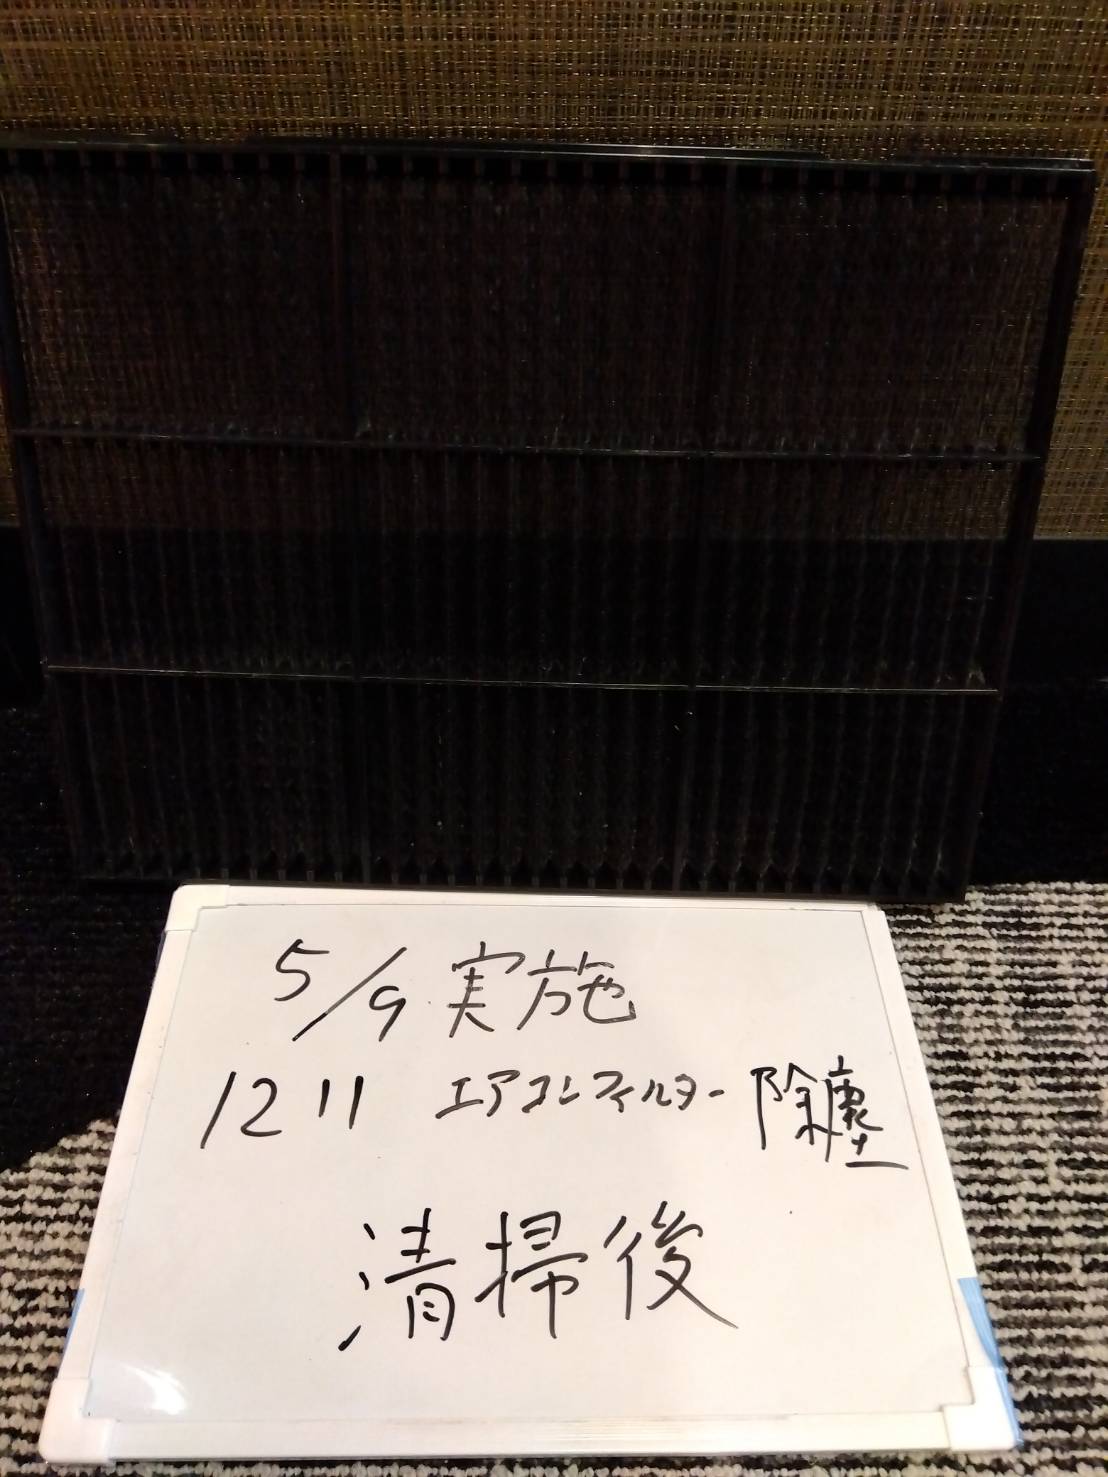 5/9 実施
1211 エアコンフィルター 除塵
清掃後